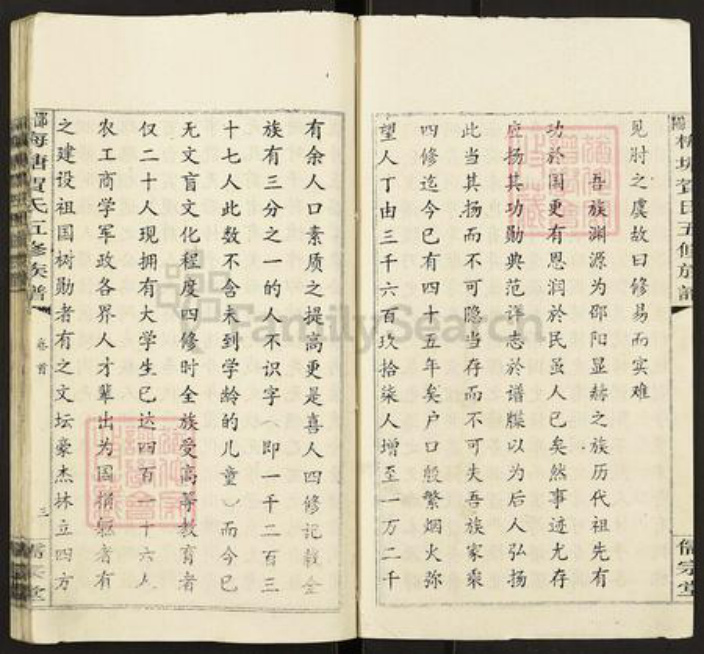 见肘之虞故曰修易而实难
吾族渊源为邵阳显赫之族历代祖先有
功於国更有恩润於民虽人已矣然事迹尤存
应扬其功勋典范详志於谱牒以为后人弘扬
此当其扬而不可隐当存而不可失吾族家乘
四修迄今已有四十五年矣户口殷繁烟火弥
望人丁由三千六百玖拾柒人增至一万二千
有余人口素质之提高更是喜人四修记载全
族有三分之一的人不识字（即一千二百三
十七人此数不含未到学龄的儿童）而今已
无文盲文化程度四修时全族受高等教育者
仅二十人现拥有大学生已达四百一十六人
农工商学军政各界人才辈出为国捐躯者有
之建设祖国树勋者有之文坛豪杰林立四方
贺氏五修族谱
儒宗堂
海塘贺氏五修族谱
卷首
三
儒宗堂
FamilySearch